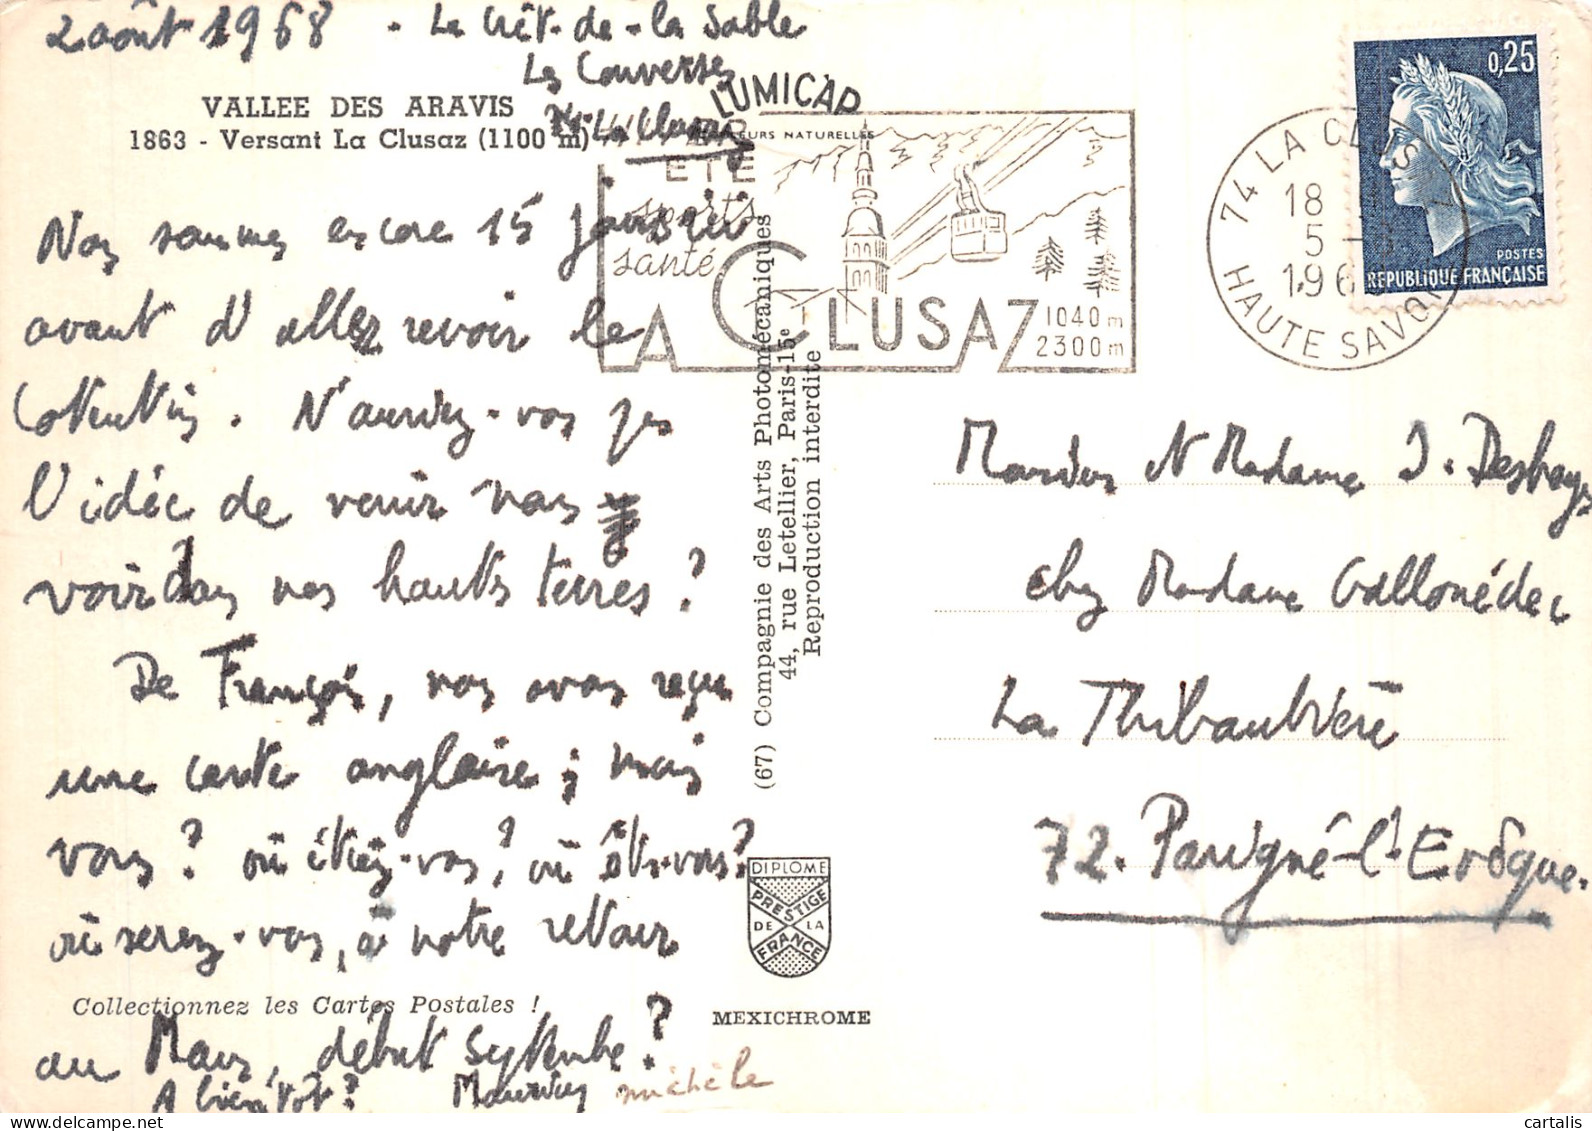 2 août 1968 - Le Crêt-de-la Sable
Les Converses
74-La Clusaz
VALLEE DES ARAVIS
1863 - Versant La Clusaz (1100 m)
Nous sommes encore 15 jours ici
avant d'aller revoir le
Cotentin. N'auriez-vous pas
l'idée de venir nous
voir dans nos hautes terres ?
De François, nous avons reçu
une carte anglaise ; mais
vous ? où étiez-vous, ? où êtes-vous ?
où serez-vous, à notre retour
Collectionnez les Cartes Postales !
au Mans, début Septembre ?
A bientôt ? Maurice Michèle
LUMICAP
COULEURS NATURELLES
ÉTÉ
sports
santé
LA CLUSAZ
1040 m
2300 m
(67) Compagnie des Arts Photomécaniques
44, rue Letellier, Paris-15e
Reproduction interdite
DIPLOME
PRESTIGE
DE LA
FRANCE
MEXICHROME
0,25
POSTES
REPUBLIQUE FRANÇAISE
74 LA CLUSAZ
18
5 -
196
HAUTE SAVOIE
Monsieur et Madame J. Deshayes
chez Madame Gallonédec
La Thibaudière
72. Parigné-l'Evêque.
cartalis